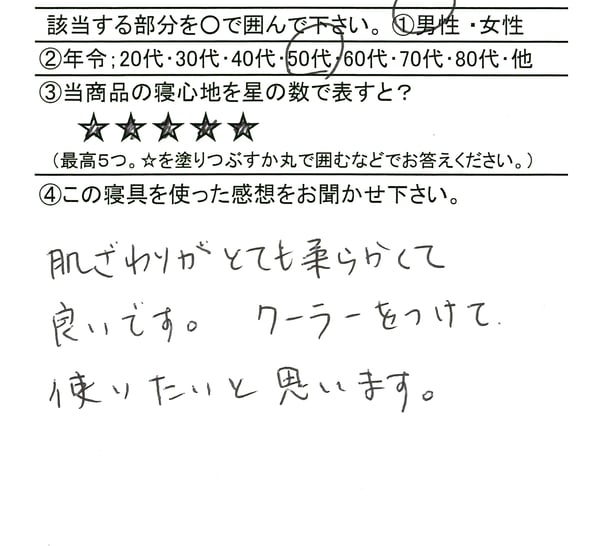 該当する部分を〇で囲んで下さい。①男性・女性
②年令;20代・30代・40代・50代・60代・70代・80代・他
③当商品の寝心地を星の数で表すと？
☆☆☆☆☆
(最高5つ。☆を塗りつぶすか丸で囲むなどでお答えください。)
④この寝具を使った感想をお聞かせ下さい。
肌ざわりがとても柔らかくて
良いです。 クーラーをつけて
使いたいと思います。